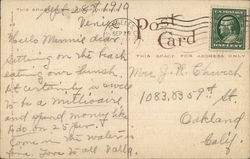 Sept 28th 1910
Venice
Hello Minnie dear,
Sitting on the beach
eating our lunch.
It certainly is swell
to be a millionaire
and spend money like
Come in the water is
fine. Love to all
Post
Card
THIS SPACE FOR ADDRESS ONLY
Mrs. J. K. Church
1083. 59th St.
Oakland
Calif